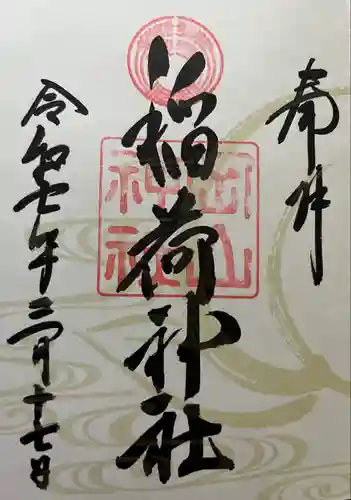 奉拝
稲荷神社
令和七年三月十七日